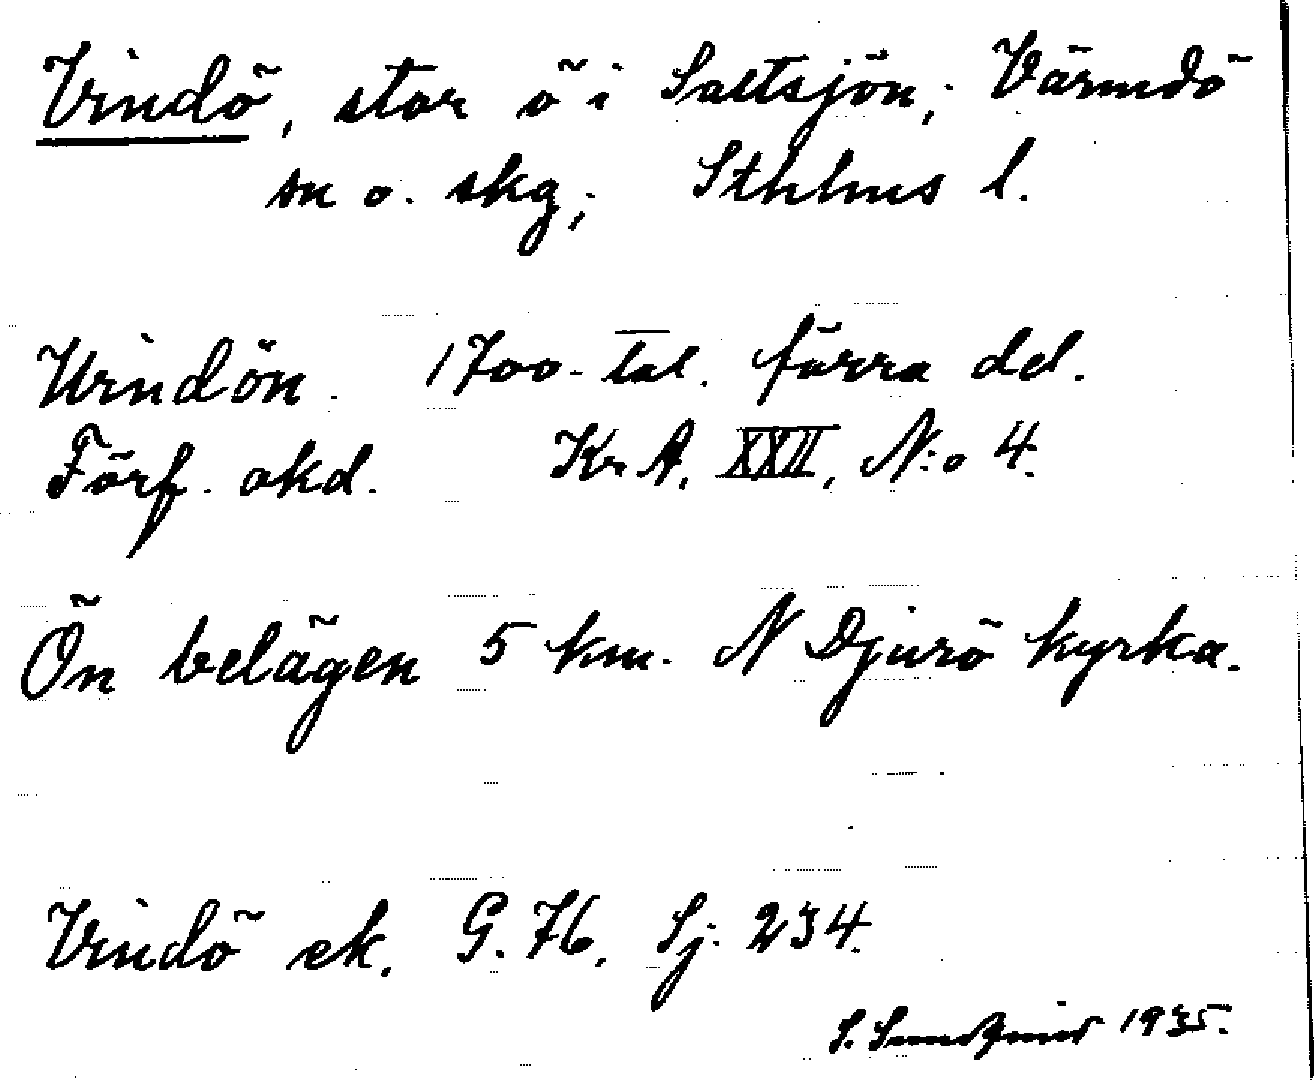 Vindö, stor ö i Saltsjön; Värmdö
sn o. skg; Sthlms l.
Windön. 1700-tal. förra del.
Förf. okd. Kr. A. XXII, N:o 4.
Ön belägen 5 km. N Djurö kyrka.
Vindö ek. G. 76. Sj. 234.
S. 1935.